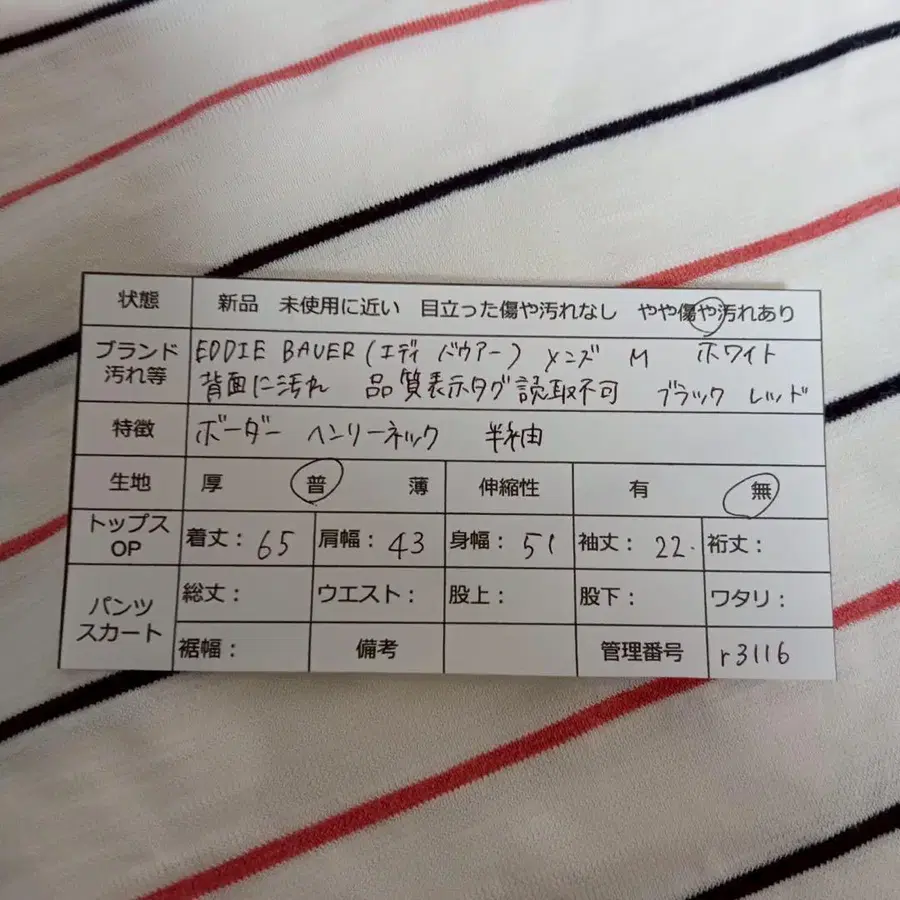 状態 新品 未使用に近い 目立った傷や汚れなし やや傷や汚れあり
ブランド 汚れ等 EDDIE BAUER (エディ バウアー) メンズ M ホワイト
背面に汚れ 品質表示タグ読取不可 ブラック レッド
特徴 ボーダー ヘンリーネック 半袖
生地 厚 普 薄 伸縮性 有 無
トップス OP 着丈：65 肩幅：43 身幅：51 袖丈：22. 裄丈：
パンツ スカート 総丈： ウエスト： 股上： 股下： ワタリ：
裾幅： 備考 管理番号 r3116